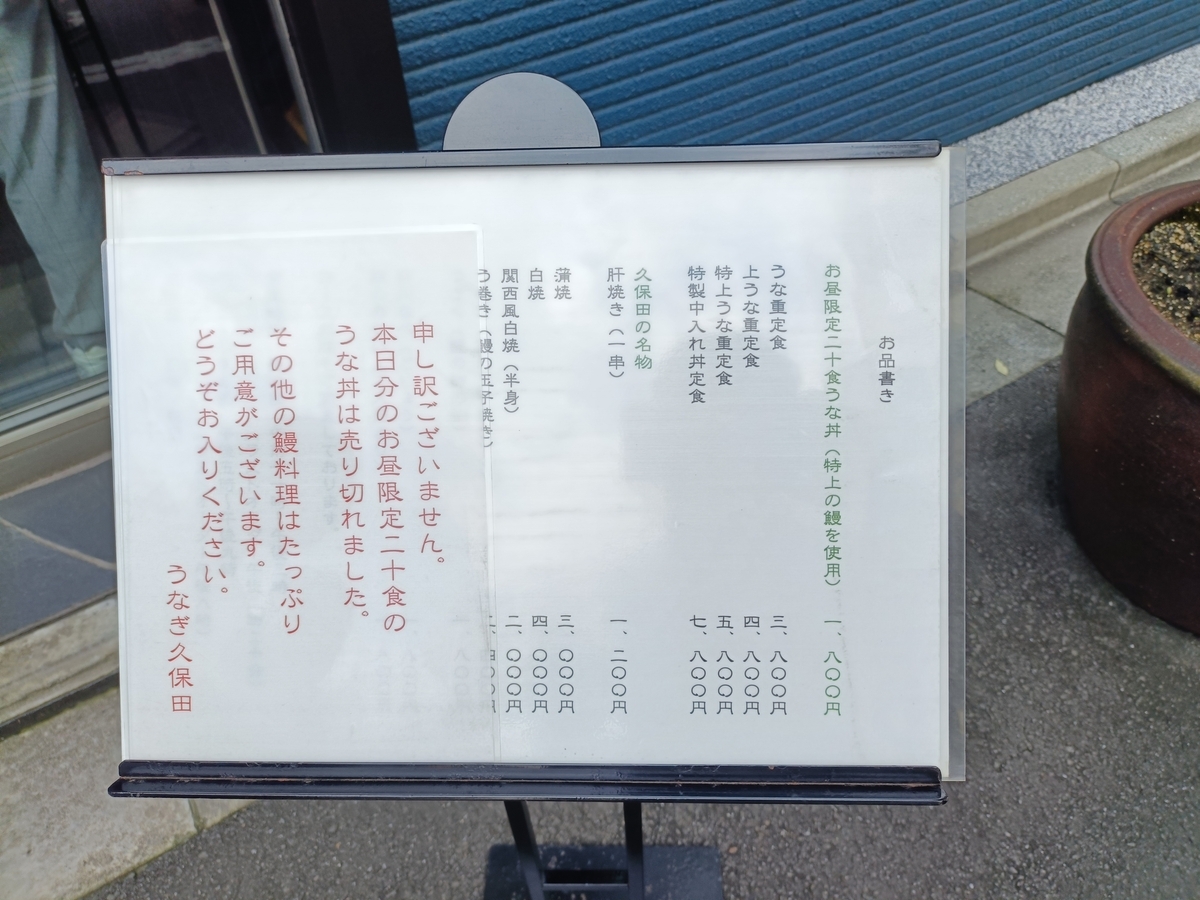 お品書き
お昼限定二十食うな丼（特上の鰻を使用） 一、八〇〇円
うな重定食 三、八〇〇円
上うな重定食 四、八〇〇円
特上うな重定食 五、八〇〇円
特製中入れ丼定食 七、八〇〇円
久保田の名物
肝焼き（一串） 一、二〇〇円
蒲焼 三、〇〇〇円
白焼 四、〇〇〇円
関西風白焼（半身） 二、〇〇〇円
う巻き（鰻の玉子焼き）
申し訳ございません。
本日分のお昼限定二十食の
うな丼は売り切れました。
その他の鰻料理はたっぷり
ご用意がございます。
どうぞお入りください。
うなぎ久保田